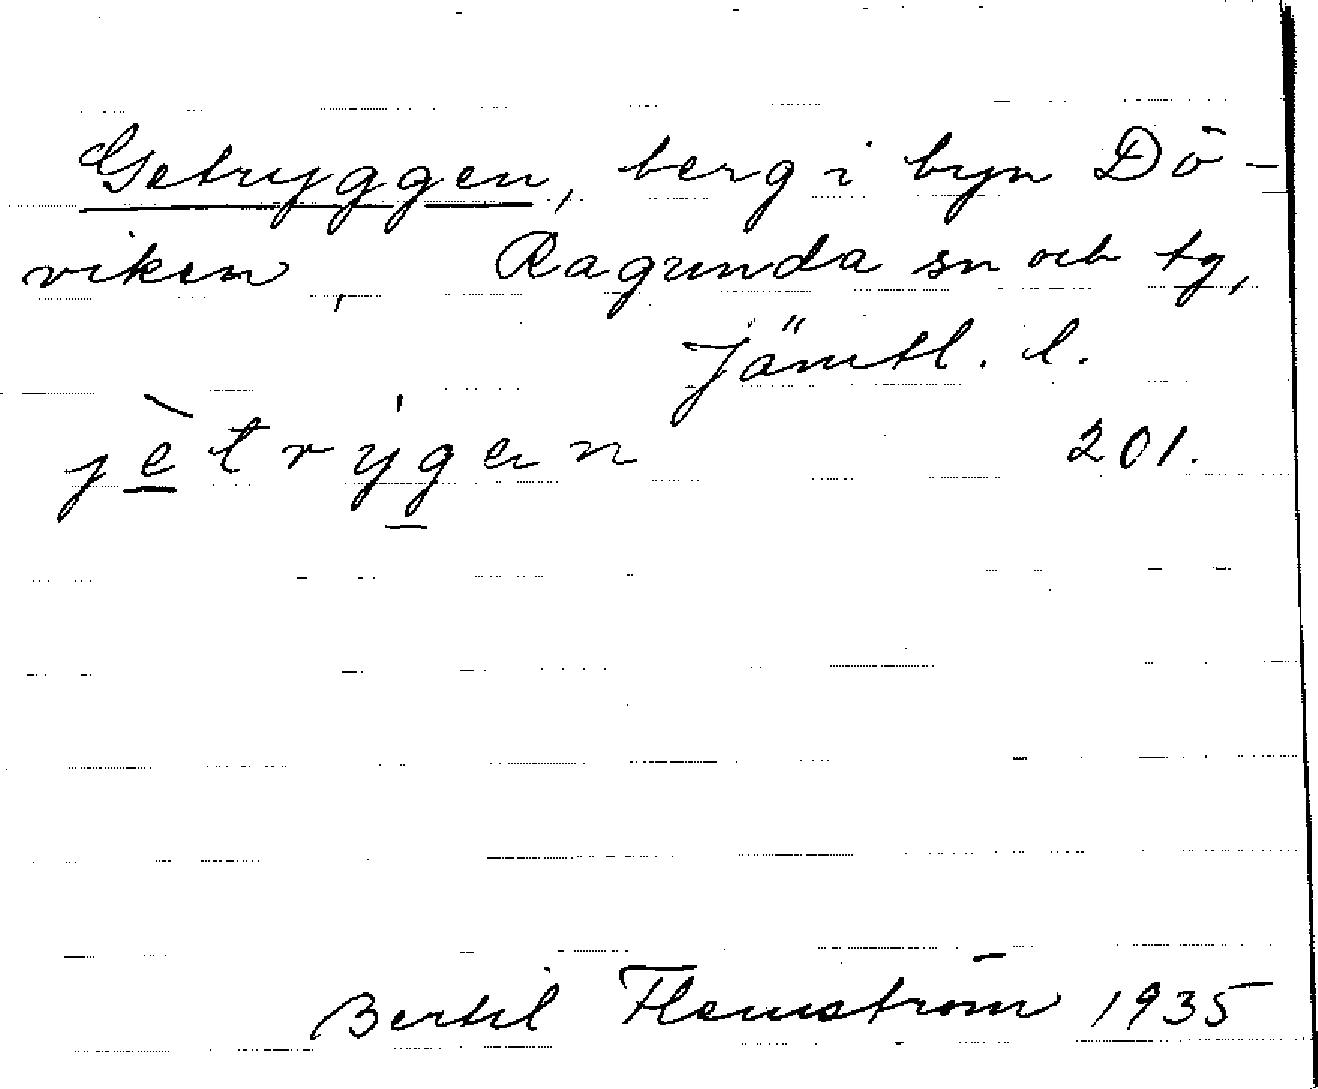 Getryggen, berg i byn Dö-
viken, Ragunda sn och tg,
Jämtl. l.
jètrýgen 201.
Bertil Flemström 1935